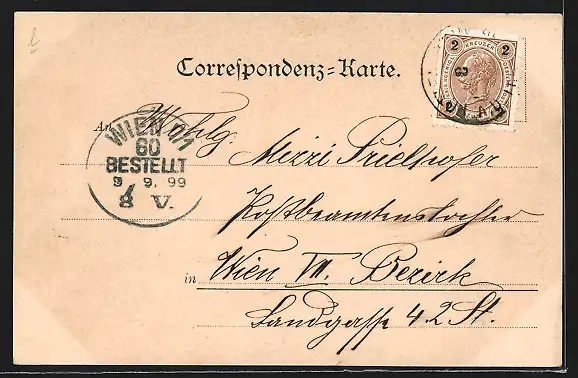 Correspondenz-Karte.
2 KREUZER 2
WIEN 6/1
60
BESTELLT
9 9. 99
8 V.
An Wohlg.
Mizzi Prielhofer
Postbeamtenstochter
in Wien VII. Bezirk
Landgasse 42 St.